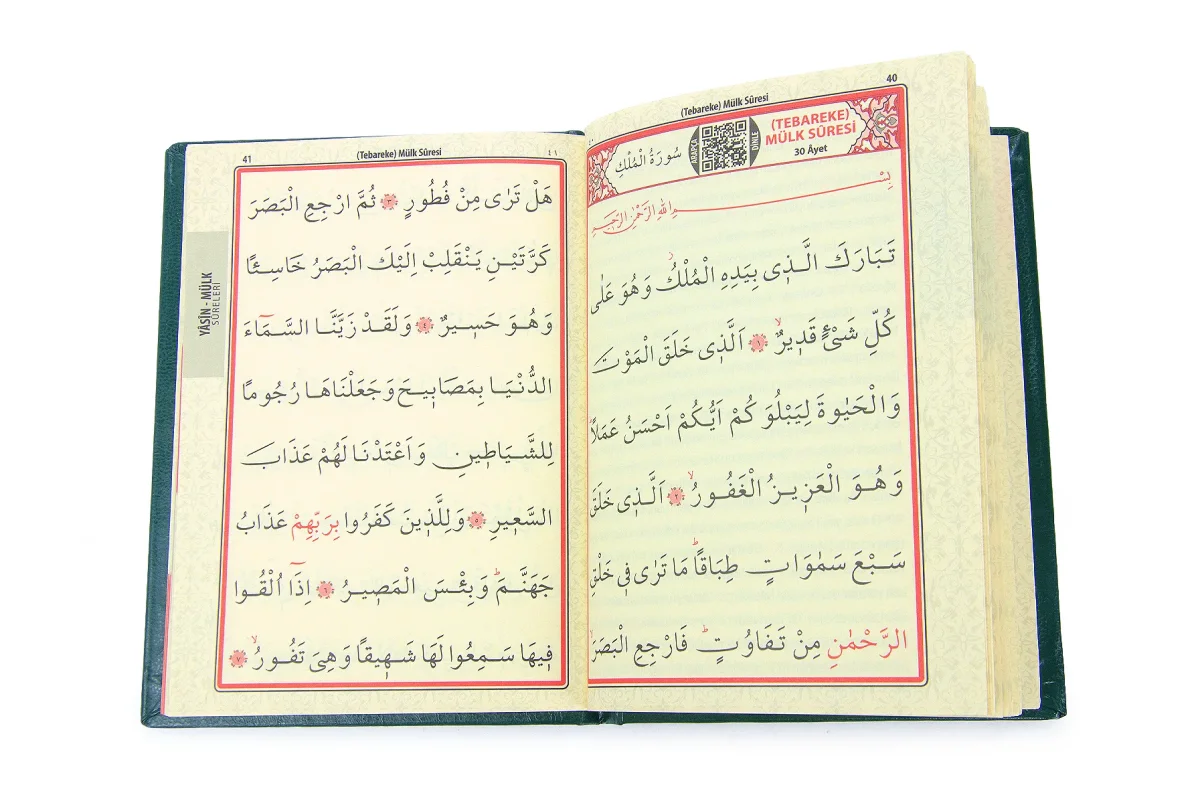 40
(Tebareke) Mülk Sûresi
(TEBAREKE)
MÜLK SÛRESİ
30 Âyet
DİNLE
ARAPÇA
سُورَةُ الْمُلْكِ
بِسْمِ اللّٰهِ الرَّحْمٰنِ الرَّحٖيمِ
تَبَارَكَ الَّذٖى بِيَدِهِ الْمُلْكُ وَهُوَ عَلٰى
كُلِّ شَىْءٍ قَدٖيرٌ ﴿١﴾ اَلَّذٖى خَلَقَ الْمَوْتَ
وَالْحَيٰوةَ لِيَبْلُوَكُمْ اَيُّكُمْ اَحْسَنُ عَمَلًا
وَهُوَ الْعَزٖيزُ الْغَفُورُ ﴿٢﴾ اَلَّذٖى خَلَقَ
سَبْعَ سَمٰوَاتٍ طِبَاقًا مَا تَرٰى فٖى خَلْقِ
الرَّحْمٰنِ مِنْ تَفَاوُتٍ فَارْجِعِ الْبَصَرَ
41
(Tebareke) Mülk Sûresi
٤١
هَلْ تَرٰى مِنْ فُطُورٍ ﴿٣﴾ ثُمَّ ارْجِعِ الْبَصَرَ
كَرَّتَيْنِ يَنْقَلِبْ اِلَيْكَ الْبَصَرُ خَاسِئًا
وَهُوَ حَسٖيرٌ ﴿٤﴾ وَلَقَدْ زَيَّنَّا السَّمَٓاءَ
الدُّنْيَا بِمَصَابٖيحَ وَجَعَلْنَاهَا رُجُومًا
لِلشَّيَاطٖينِ وَاَعْتَدْنَا لَهُمْ عَذَابَ
السَّعٖيرِ ﴿٥﴾ وَلِلَّذٖينَ كَفَرُوا بِرَبِّهِمْ عَذَابُ
جَهَنَّمَ وَبِئْسَ الْمَصٖيرُ ﴿٦﴾ اِذَٓا اُلْقُوا
فٖيهَا سَمِعُوا لَهَا شَهٖيقًا وَهِىَ تَفُورُ ﴿٧﴾
YÂSÎN - MÜLK
SÛRELERİ